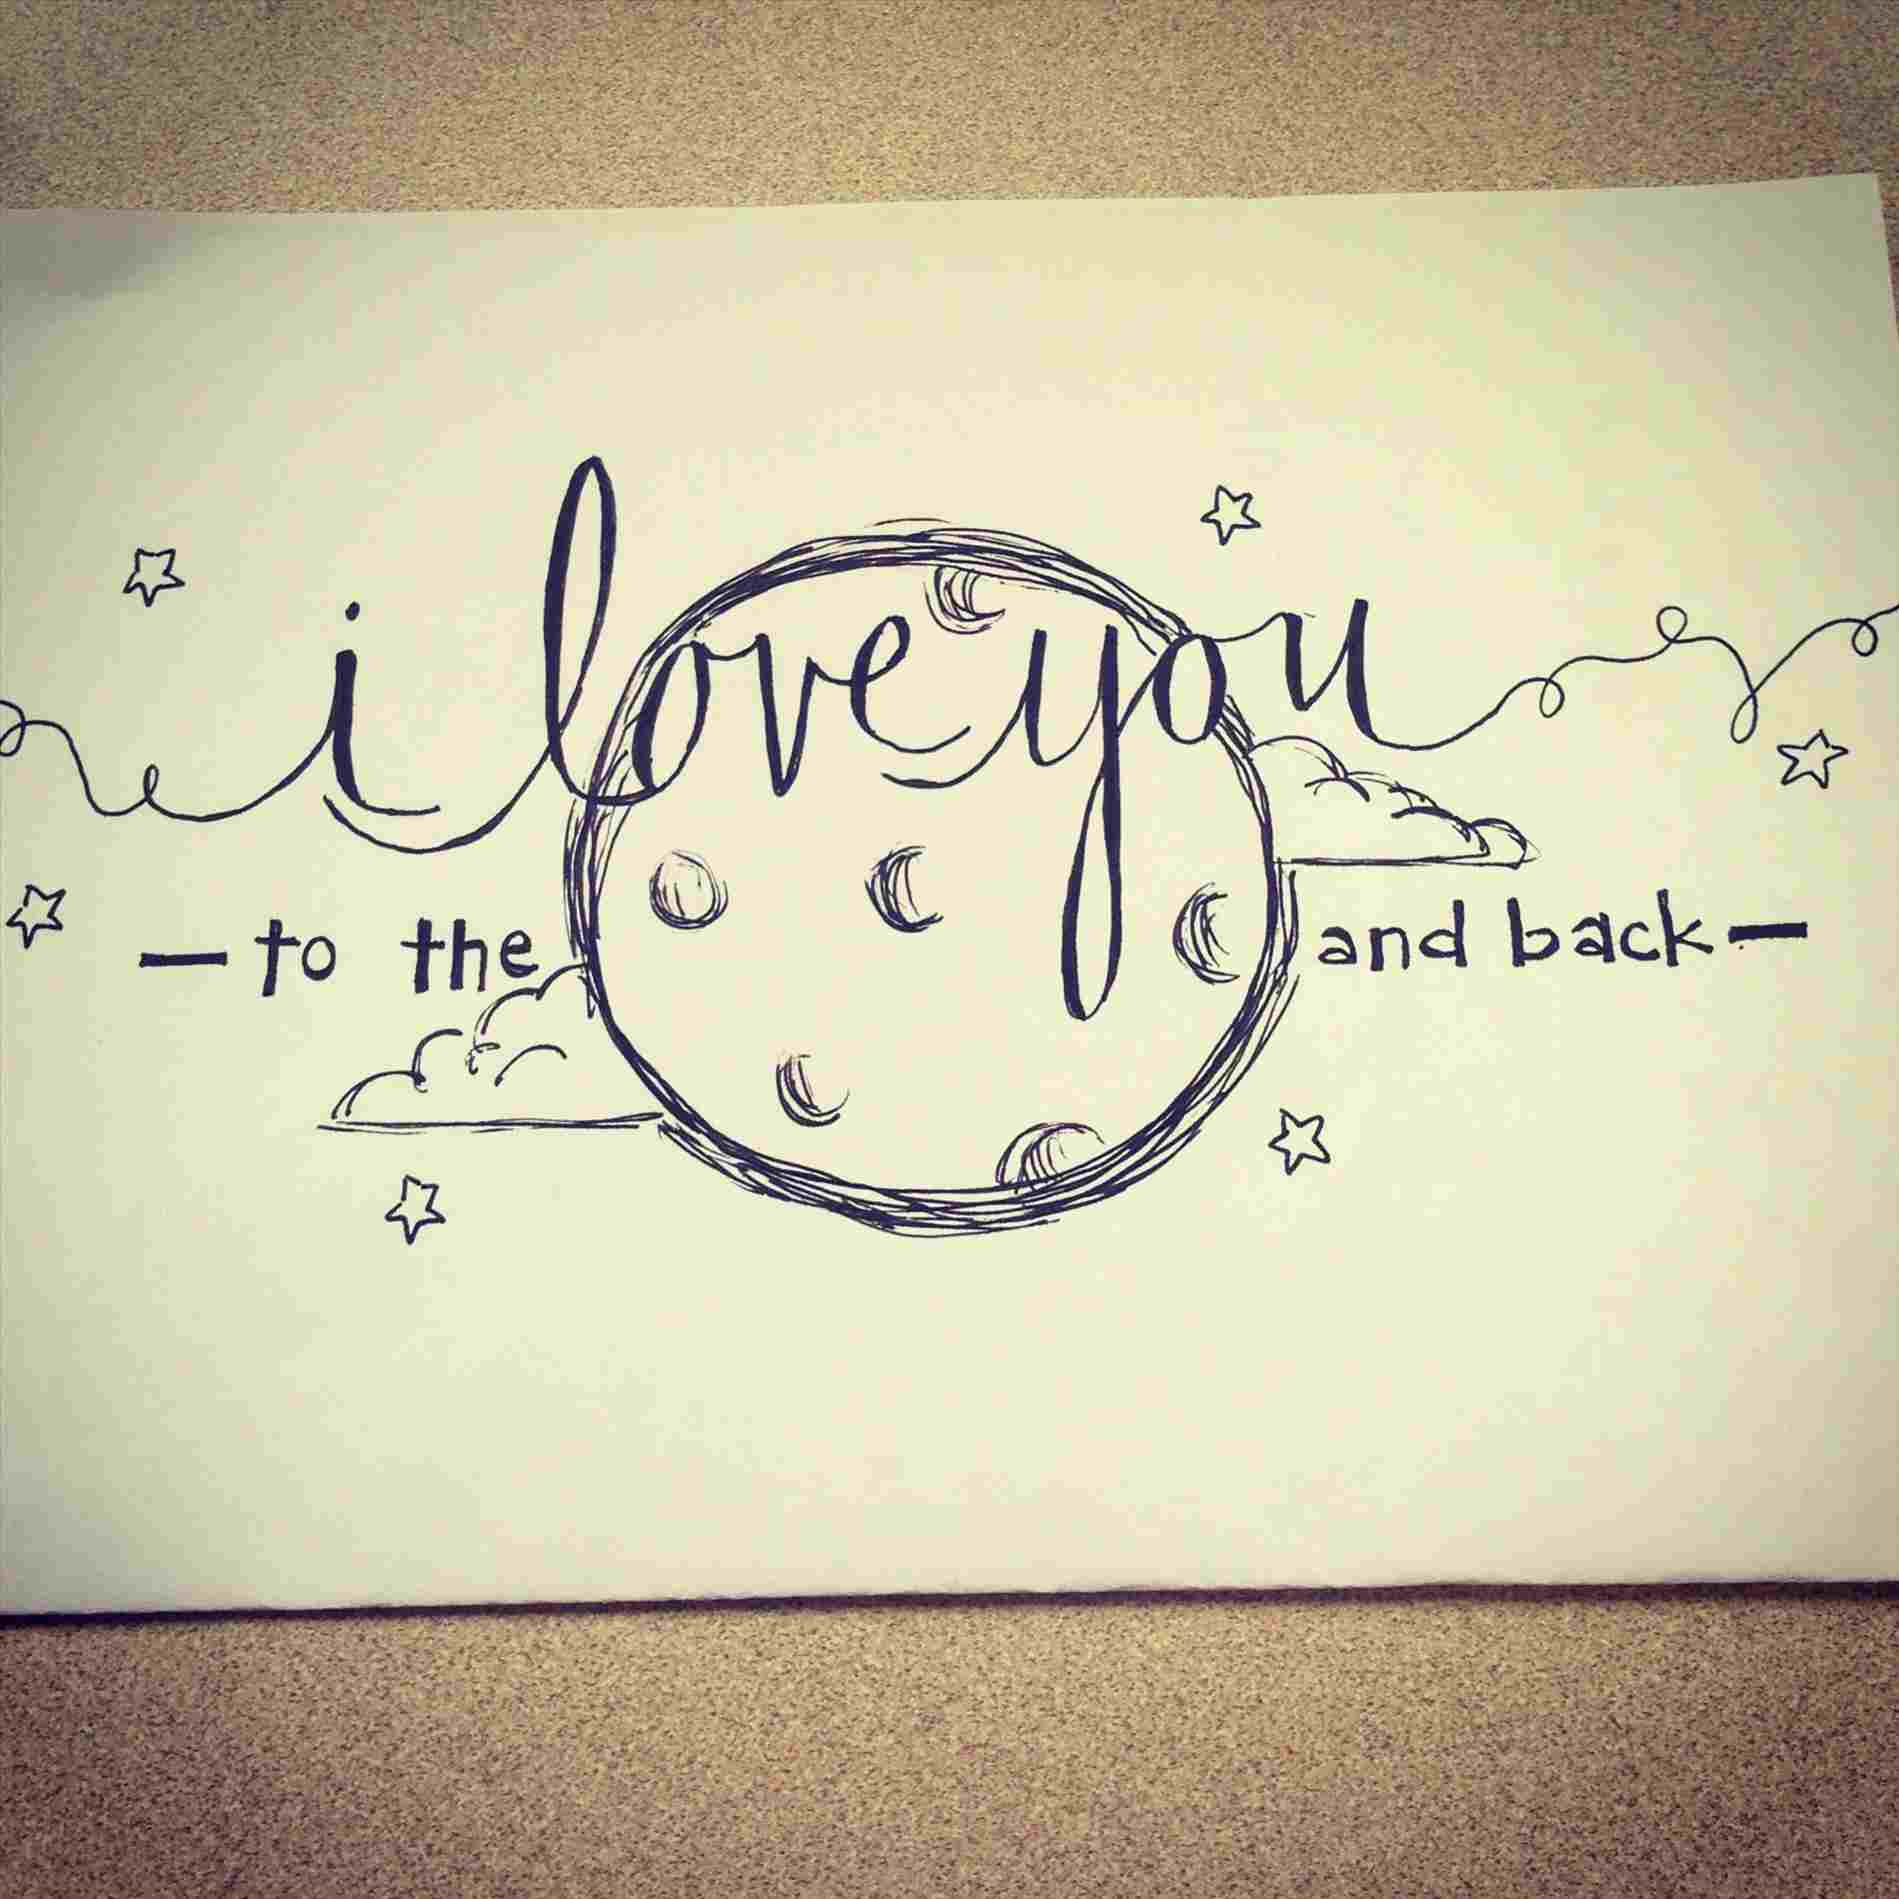 i love you
– to the and back –